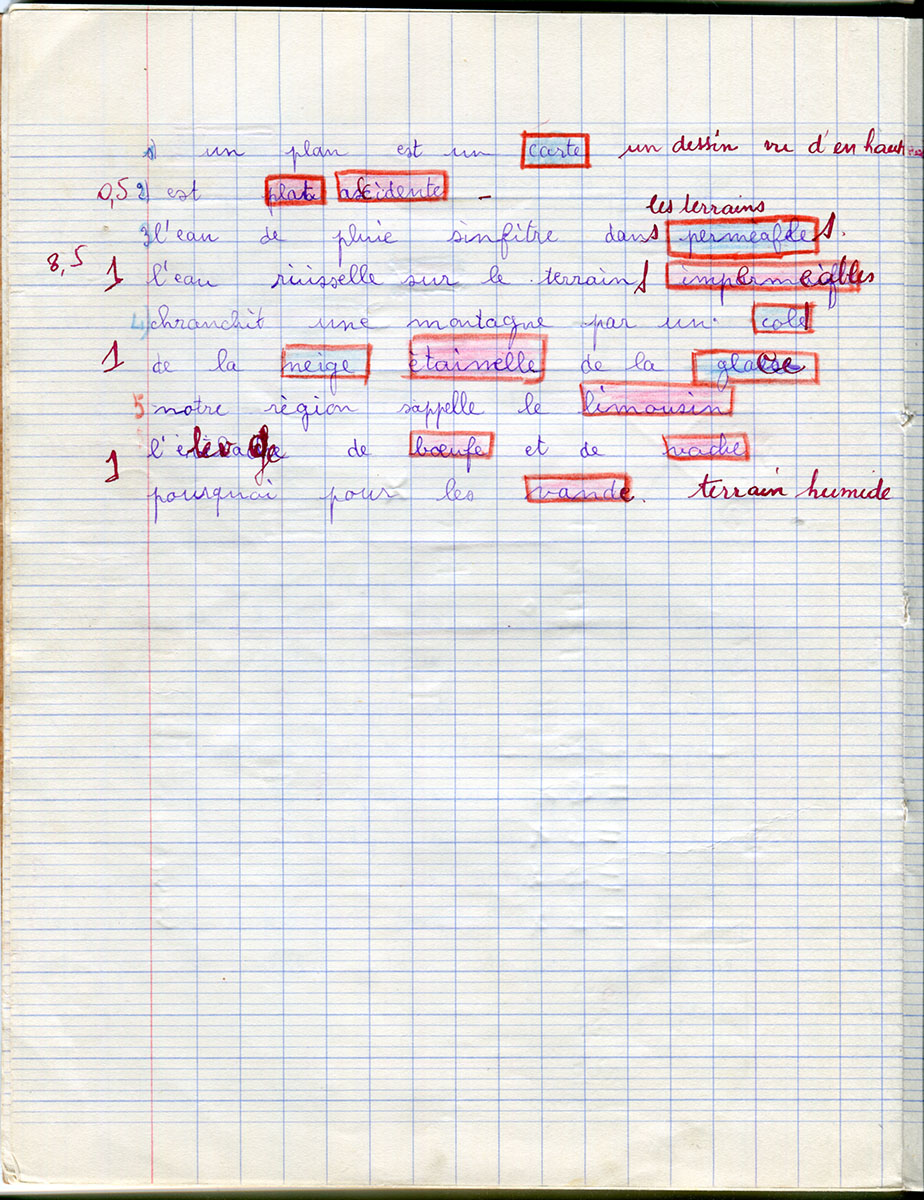 1) un plan est un carte un dessin vu d'en haut
0,5 2) est plate accidente
les terrains
3) l'eau de pluie sinfitre dans perméables.
8,5
1 l'eau ruisselle sur le terrains imperméables
4) chranchit une montagne par un col
1 de la neige étainelle de la glace
5 notre région sappelle le limousin
1 l'élevage de bœufe et de vache
pourquoi pour les viande. terrain humide